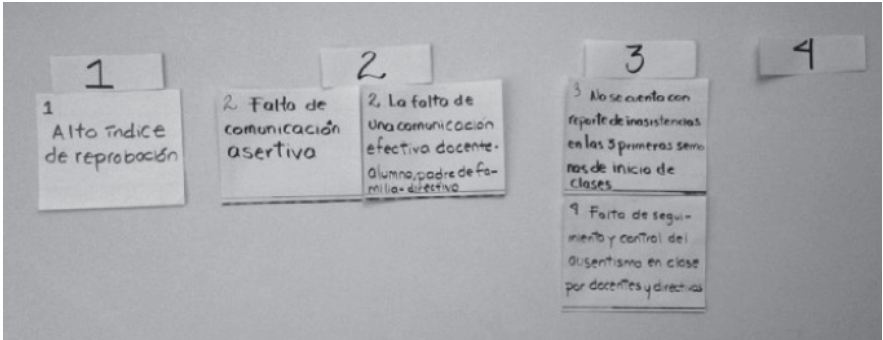 1
1
Alto indice
de reprobación
2
2 Falta de
comunicación
asertiva
2, La falta de
una comunicación
efectiva docente-
alumno, padre de fa-
milia-directivo
3
3 No se cuenta con
reporte de inasistencias
en las 3 primeras sema
nas de inicio de
clases
4 Falta de segui-
miento y control del
ausentismo en clase
por docentes y directivos
4